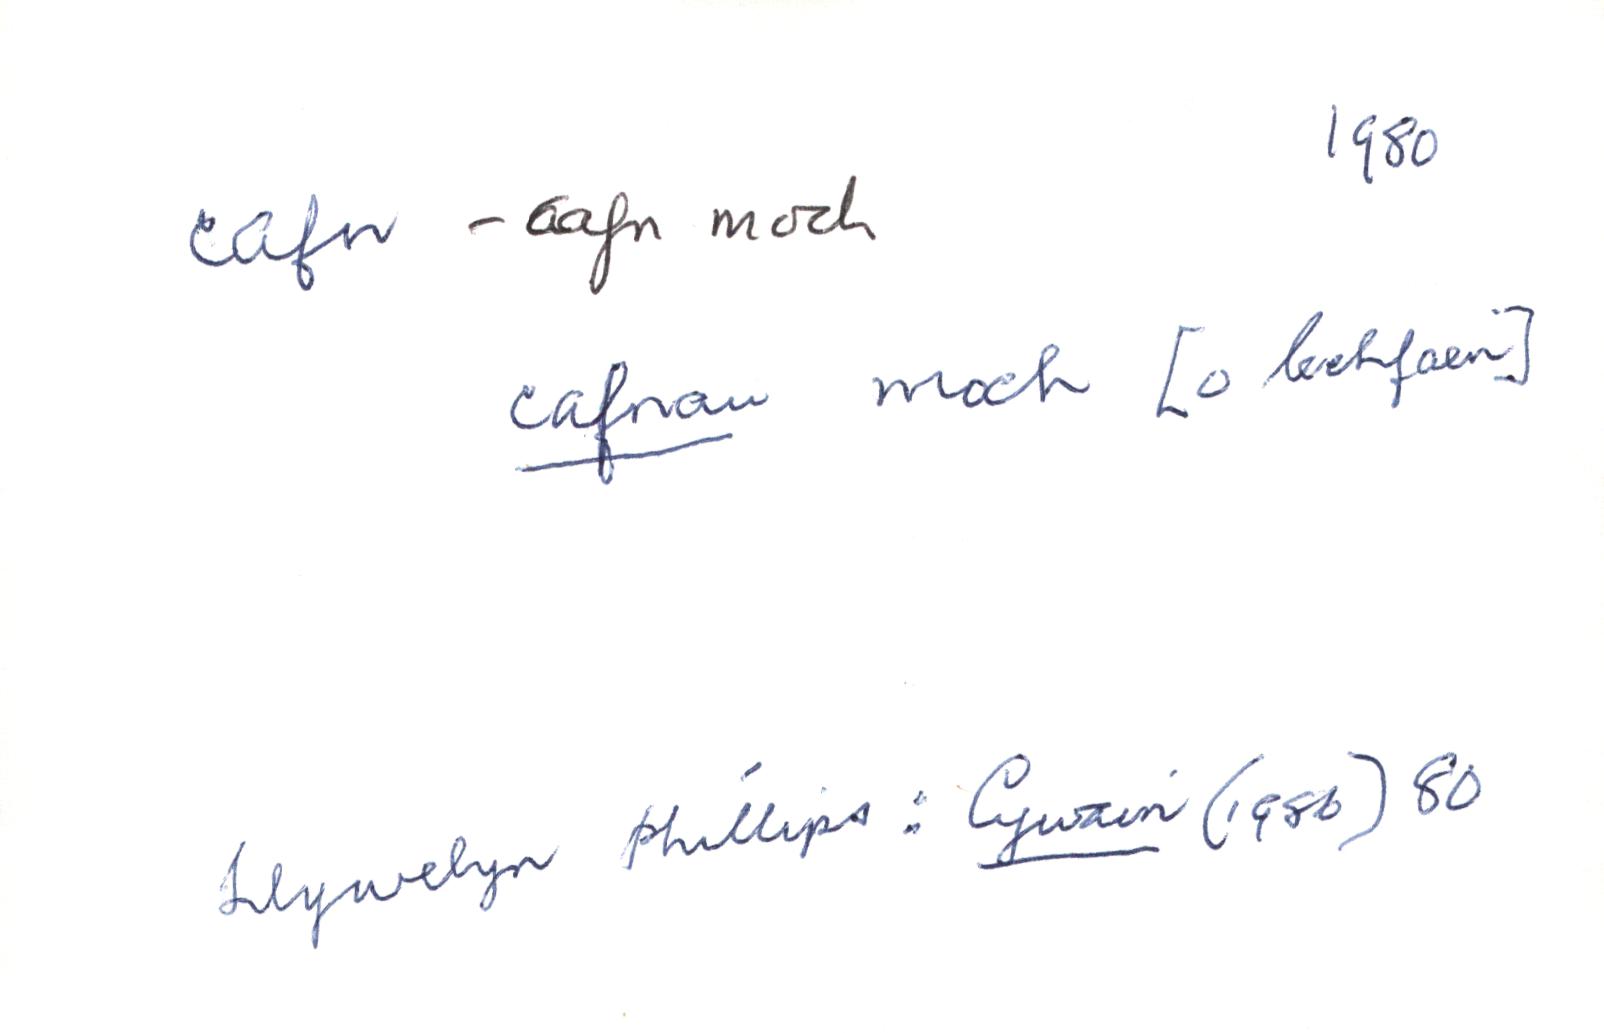 1980
cafn - cafn moch
cafnau moch [o lechfaen]
Llywelyn Phillips : Cywain (1980) 80